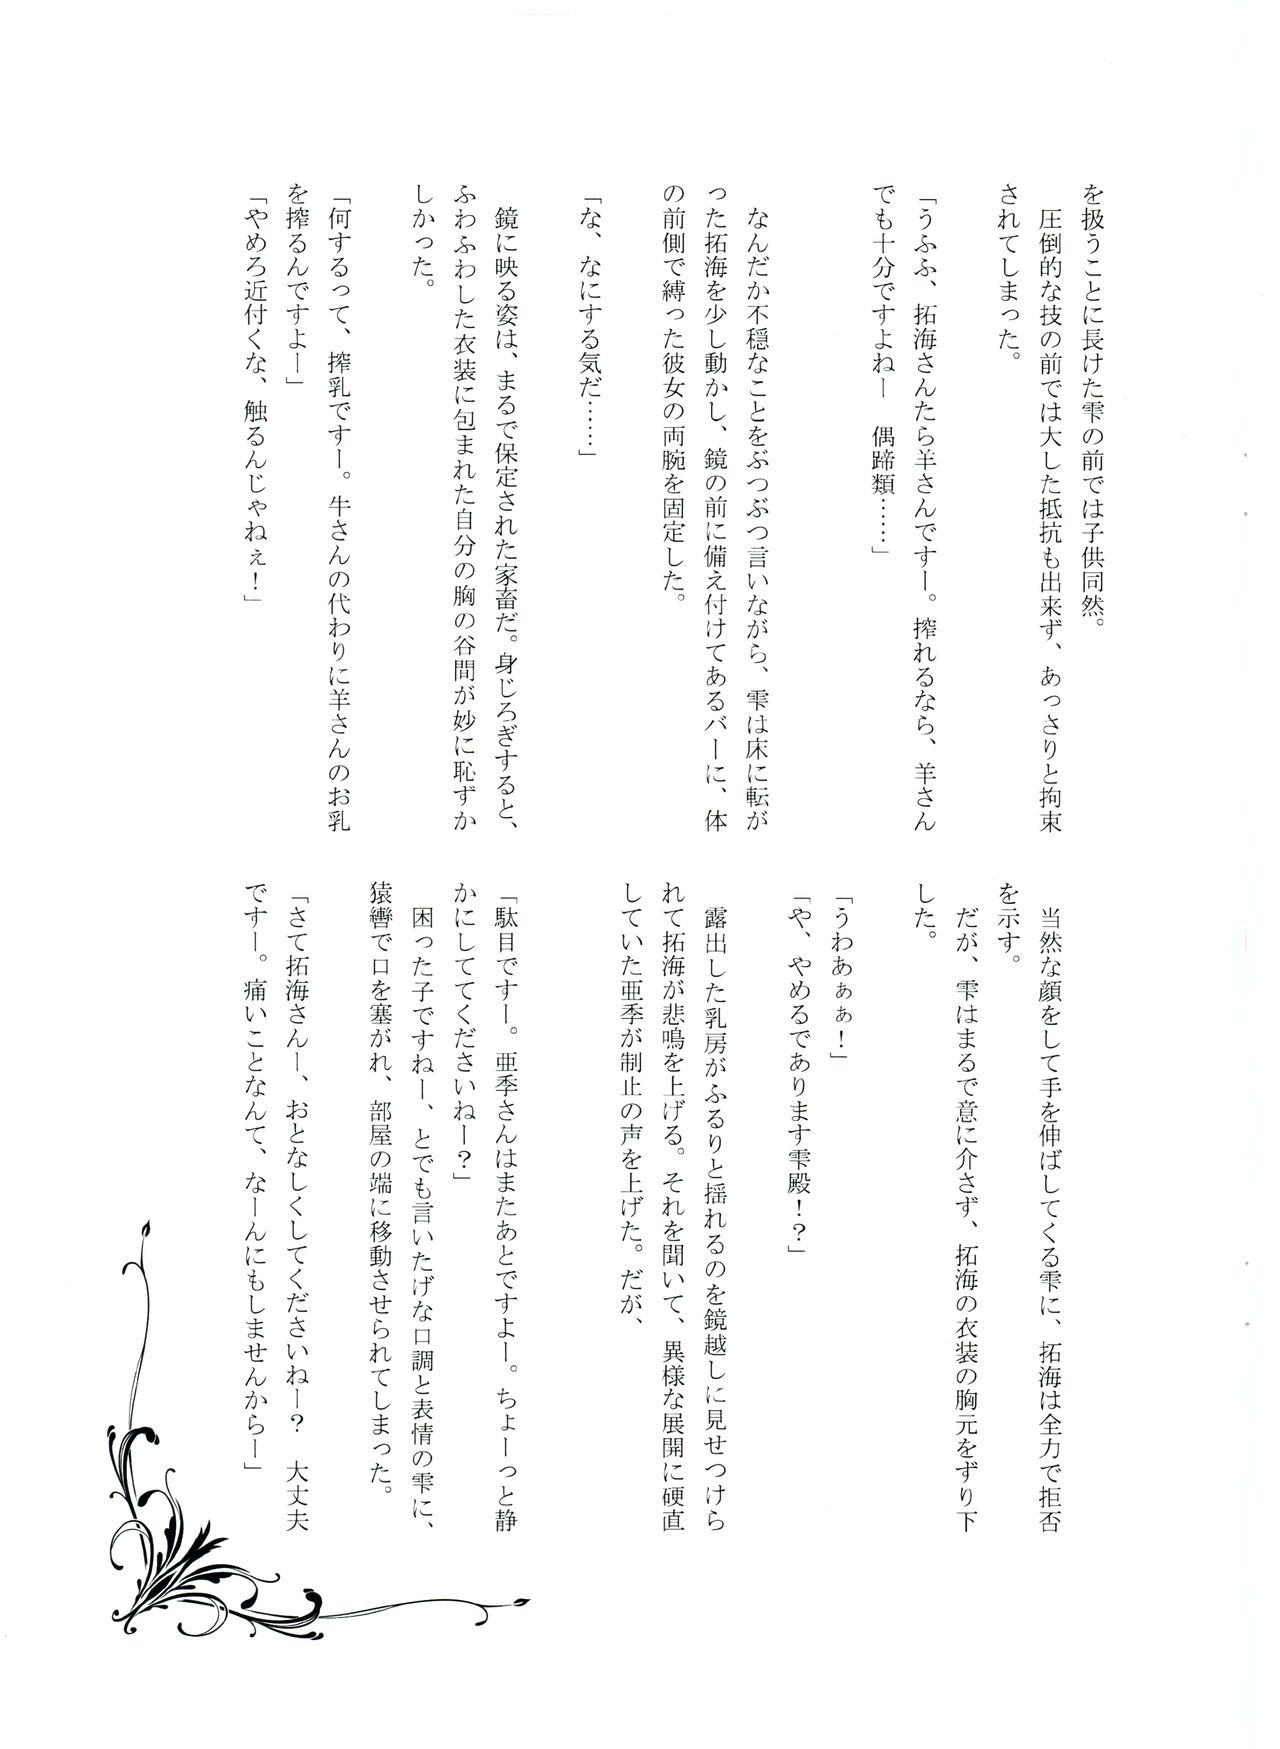 を扱うことに長けた雫の前では子供同然。
圧倒的な技の前では大した抵抗も出来ず、あっさりと拘束
されてしまった。
「うふふ、拓海さんたら羊さんですー。搾れるなら、羊さん
でも十分ですよねー　偶蹄類……」
なんだか不穏なことをぶつぶつ言いながら、雫は床に転が
った拓海を少し動かし、鏡の前に備え付けてあるバーに、体
の前側で縛った彼女の両腕を固定した。
「な、なにする気だ……」
鏡に映る姿は、まるで保定された家畜だ。身じろぎすると、
ふわふわした衣装に包まれた自分の胸の谷間が妙に恥ずか
しかった。
「何するって、搾乳ですー。牛さんの代わりに羊さんのお乳
を搾るんですよー」
「やめろ近付くな、触るんじゃねぇ！」
当然な顔をして手を伸ばしてくる雫に、拓海は全力で拒否
を示す。
だが、雫はまるで意に介さず、拓海の衣装の胸元をずり下
した。
「うわあぁぁ！」
「や、やめるであります雫殿！？」
露出した乳房がふるりと揺れるのを鏡越しに見せつけら
れて拓海が悲鳴を上げる。それを聞いて、異様な展開に硬直
していた亜季が制止の声を上げた。だが、
「駄目ですー。亜季さんはまたあとですよー。ちょーっと静
かにしててくださいねー？」
困った子ですねー、とでも言いたげな口調と表情の雫に、
猿轡で口を塞がれ、部屋の端に移動させられてしまった。
「さて拓海さんー、おとなしくしてくださいねー？　大丈夫
ですー。痛いことなんて、なーんにもしませんからー」